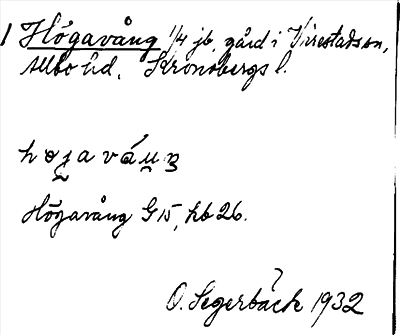 1 Högavång 1/4 jb. gård i Virestads sn,
Allbo hd. Kronobergs l.
Högavång G 15, hb 26.
O. Segerbäck 1932